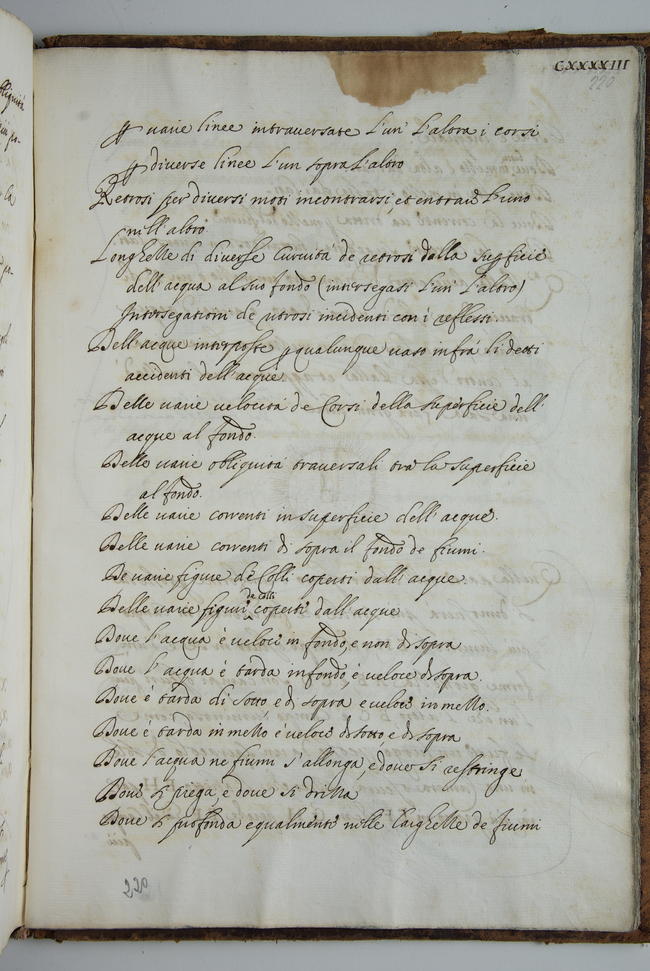 CXXXXIII
220
ꝑ varie linee intraversate l'un' l'altra i corsi
ꝑ diverse linee l'un sopra l'altro
Retrosi per diversi moti incontrarsi, et entrare l'uno
nell'altro
Longhezze di diverse curvità de retrosi dalla superficie
dell'acqua al suo fondo (intersegasi l'un' l'altro)
Intersegationi de retrosi incidenti con i reflessi.
Dell'acque interposte ꝑ qualunque vaso infrà li detti
accidenti dell'acque
Delle varie velocità de Corsi della superficie dell'
acque al fondo.
Delle varie obliquità traversali trà la superficie
al fondo.
Delle varie correnti in superficie dell'acque.
Delle varie correnti di sopra il fondo de fiumi.
De varie figure de Colli coperti dall'acque.
Delle varie figure de Colli coperti dall'acque
Dove l'acqua è veloce in fondo, e non di sopra
Dove l'acqua è tarda in fondo, è veloce di sopra.
Dove è tarda di sotto, e di sopra e veloce in mezzo.
Dove è tarda in mezzo è veloce di sotto, e di sopra
Dove l'acqua ne fiumi s'allonga, e dove si restringe
Dove si piega, e dove si drizza
Dove si profonda equalmente nelle larghezze de fiumi
220